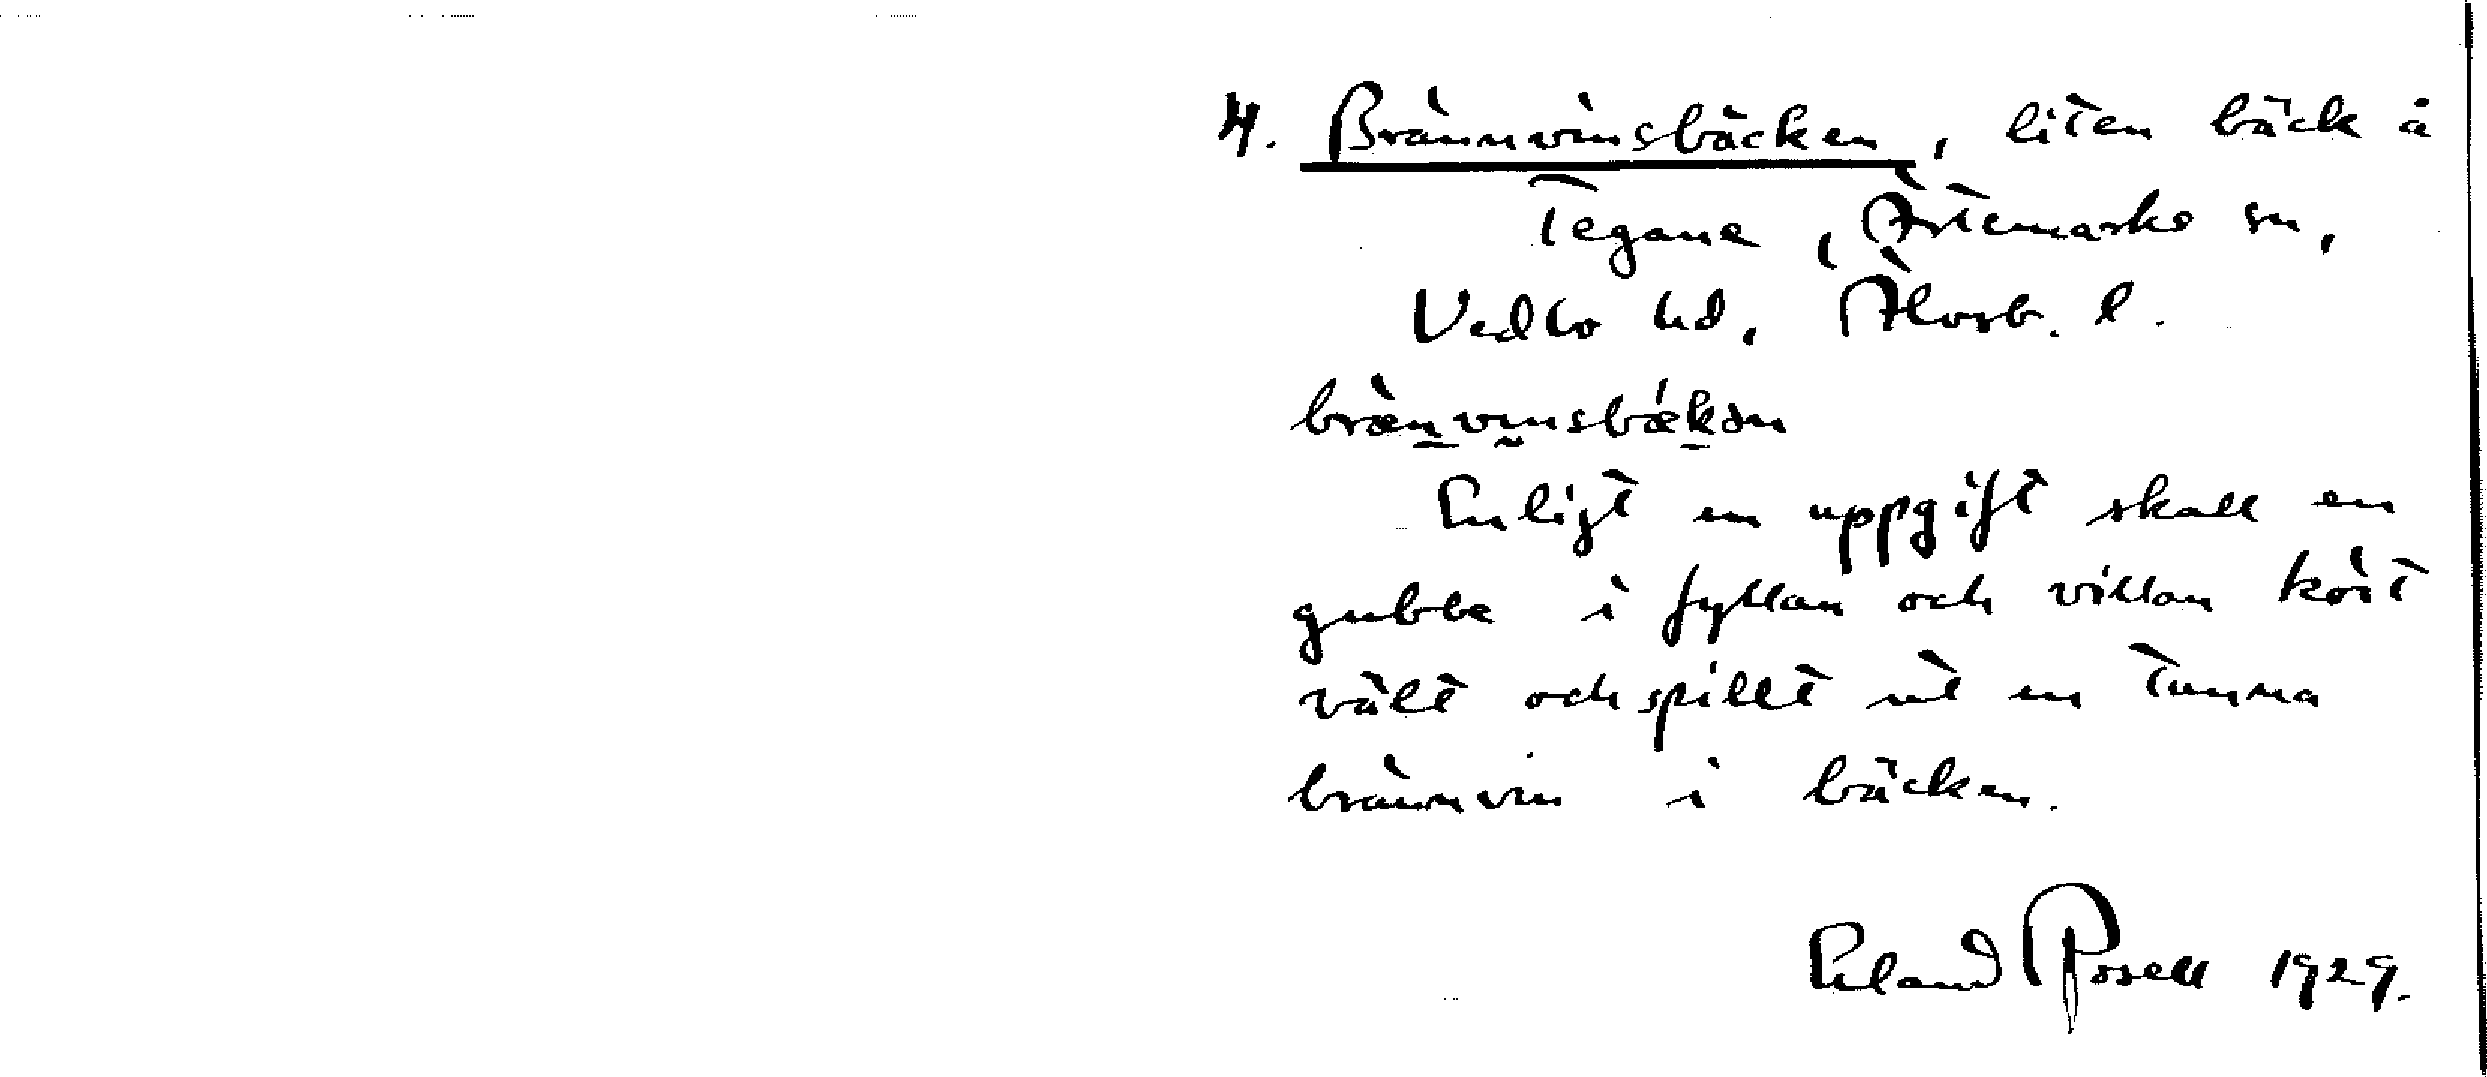 4. Brännvinsbäcken, liten bäck å
Tegane, Ärtemarks sn,
Vedbo hd, Älvsb. l.
bræ̀n̲vı̰nsbǽk̲ən
Enligt en uppgift skall en
gubbe i fyllan och villan kört
vält och spillt ut en tunna
brännvin i bäcken.
Erland Rosell 1929.